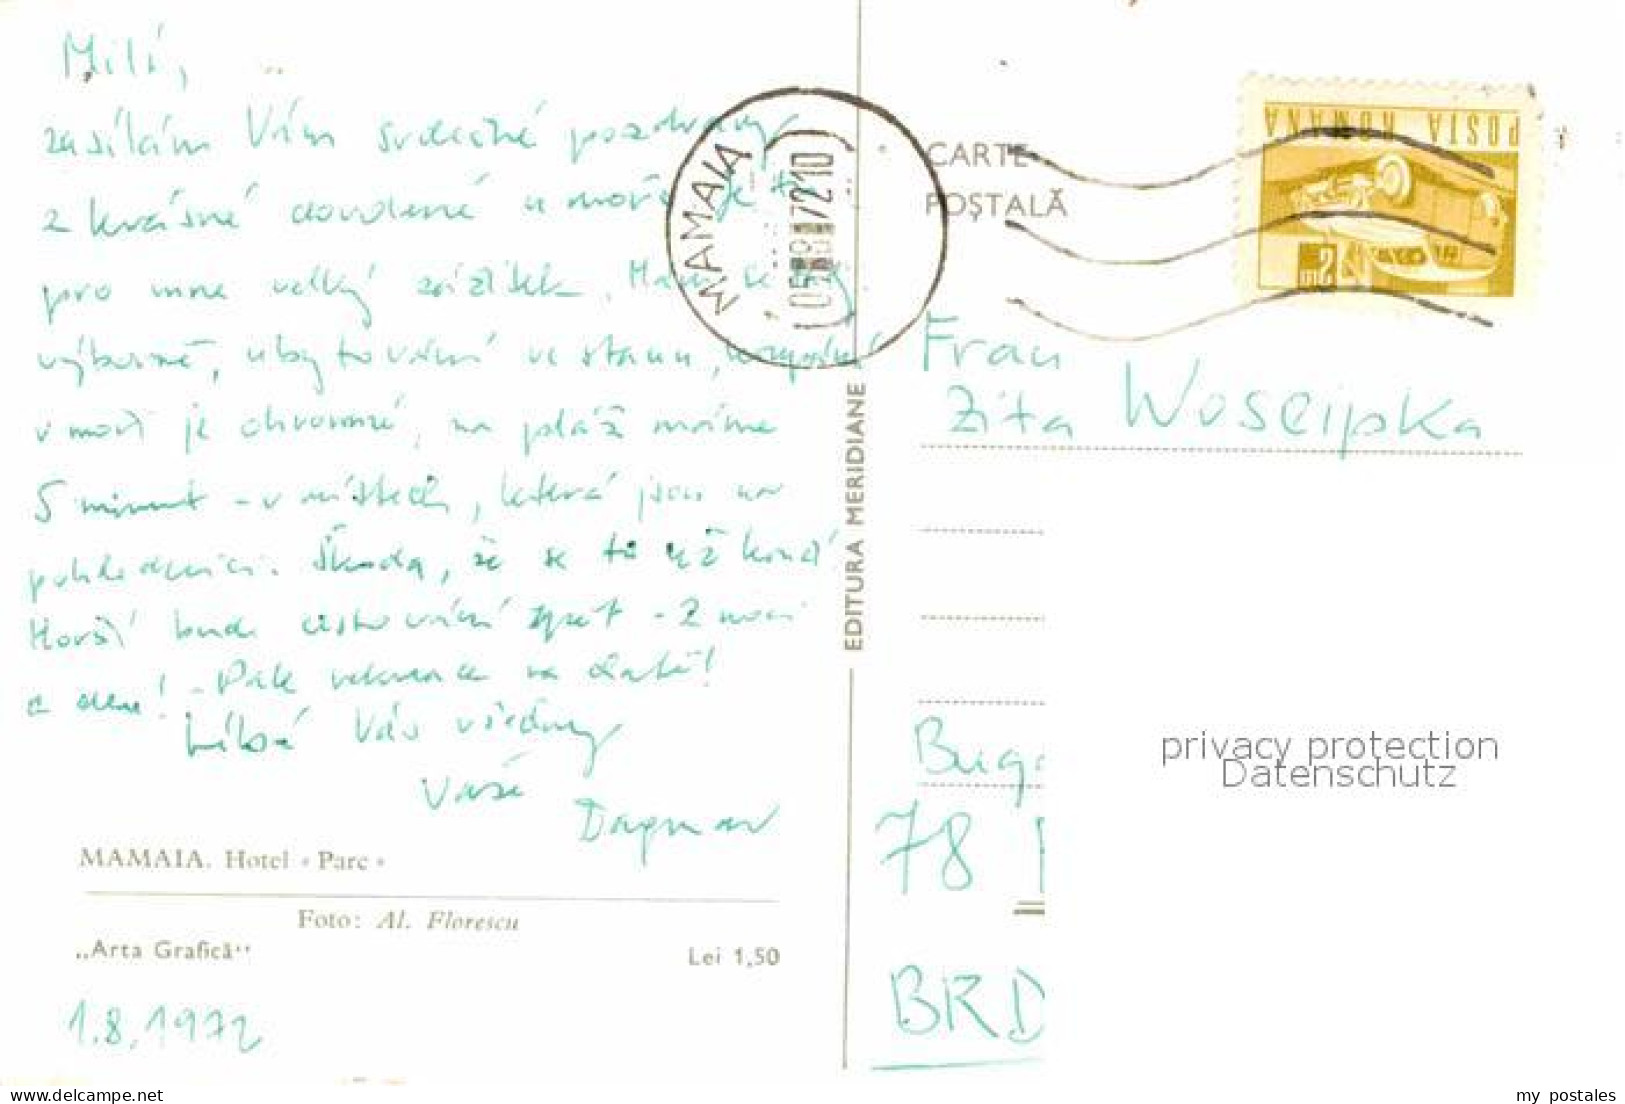 Milí,
zasílám Vám srdečné pozdravy
z krásné dovolené u moře. Je to
pro mne velký zážitek. Máme se
výborně, ubytování ve stanu, koupání
v moři je ohromné, na pláž máme
5 minut - v místech, která jsou na
pohlednici. Škoda, že se to už končí
Horší bude cestování zpět - 2 noci
a den! - Pak rekreace na chatě!
Líbá Vás všechny
Vaše
Dagmar
MAMAIA. Hotel «Parc»
Foto: Al. Florescu
„Arta Grafică"
Lei 1,50
1.8.1972
EDITURA MERIDIANE
MAMAIA
CARTE
POȘTALĂ
POSTA ROMANA
2 LEI
Frau
Zita Woscipka
78
BRD
privacy protection
Datenschutz
my postales
www.delcampe.net